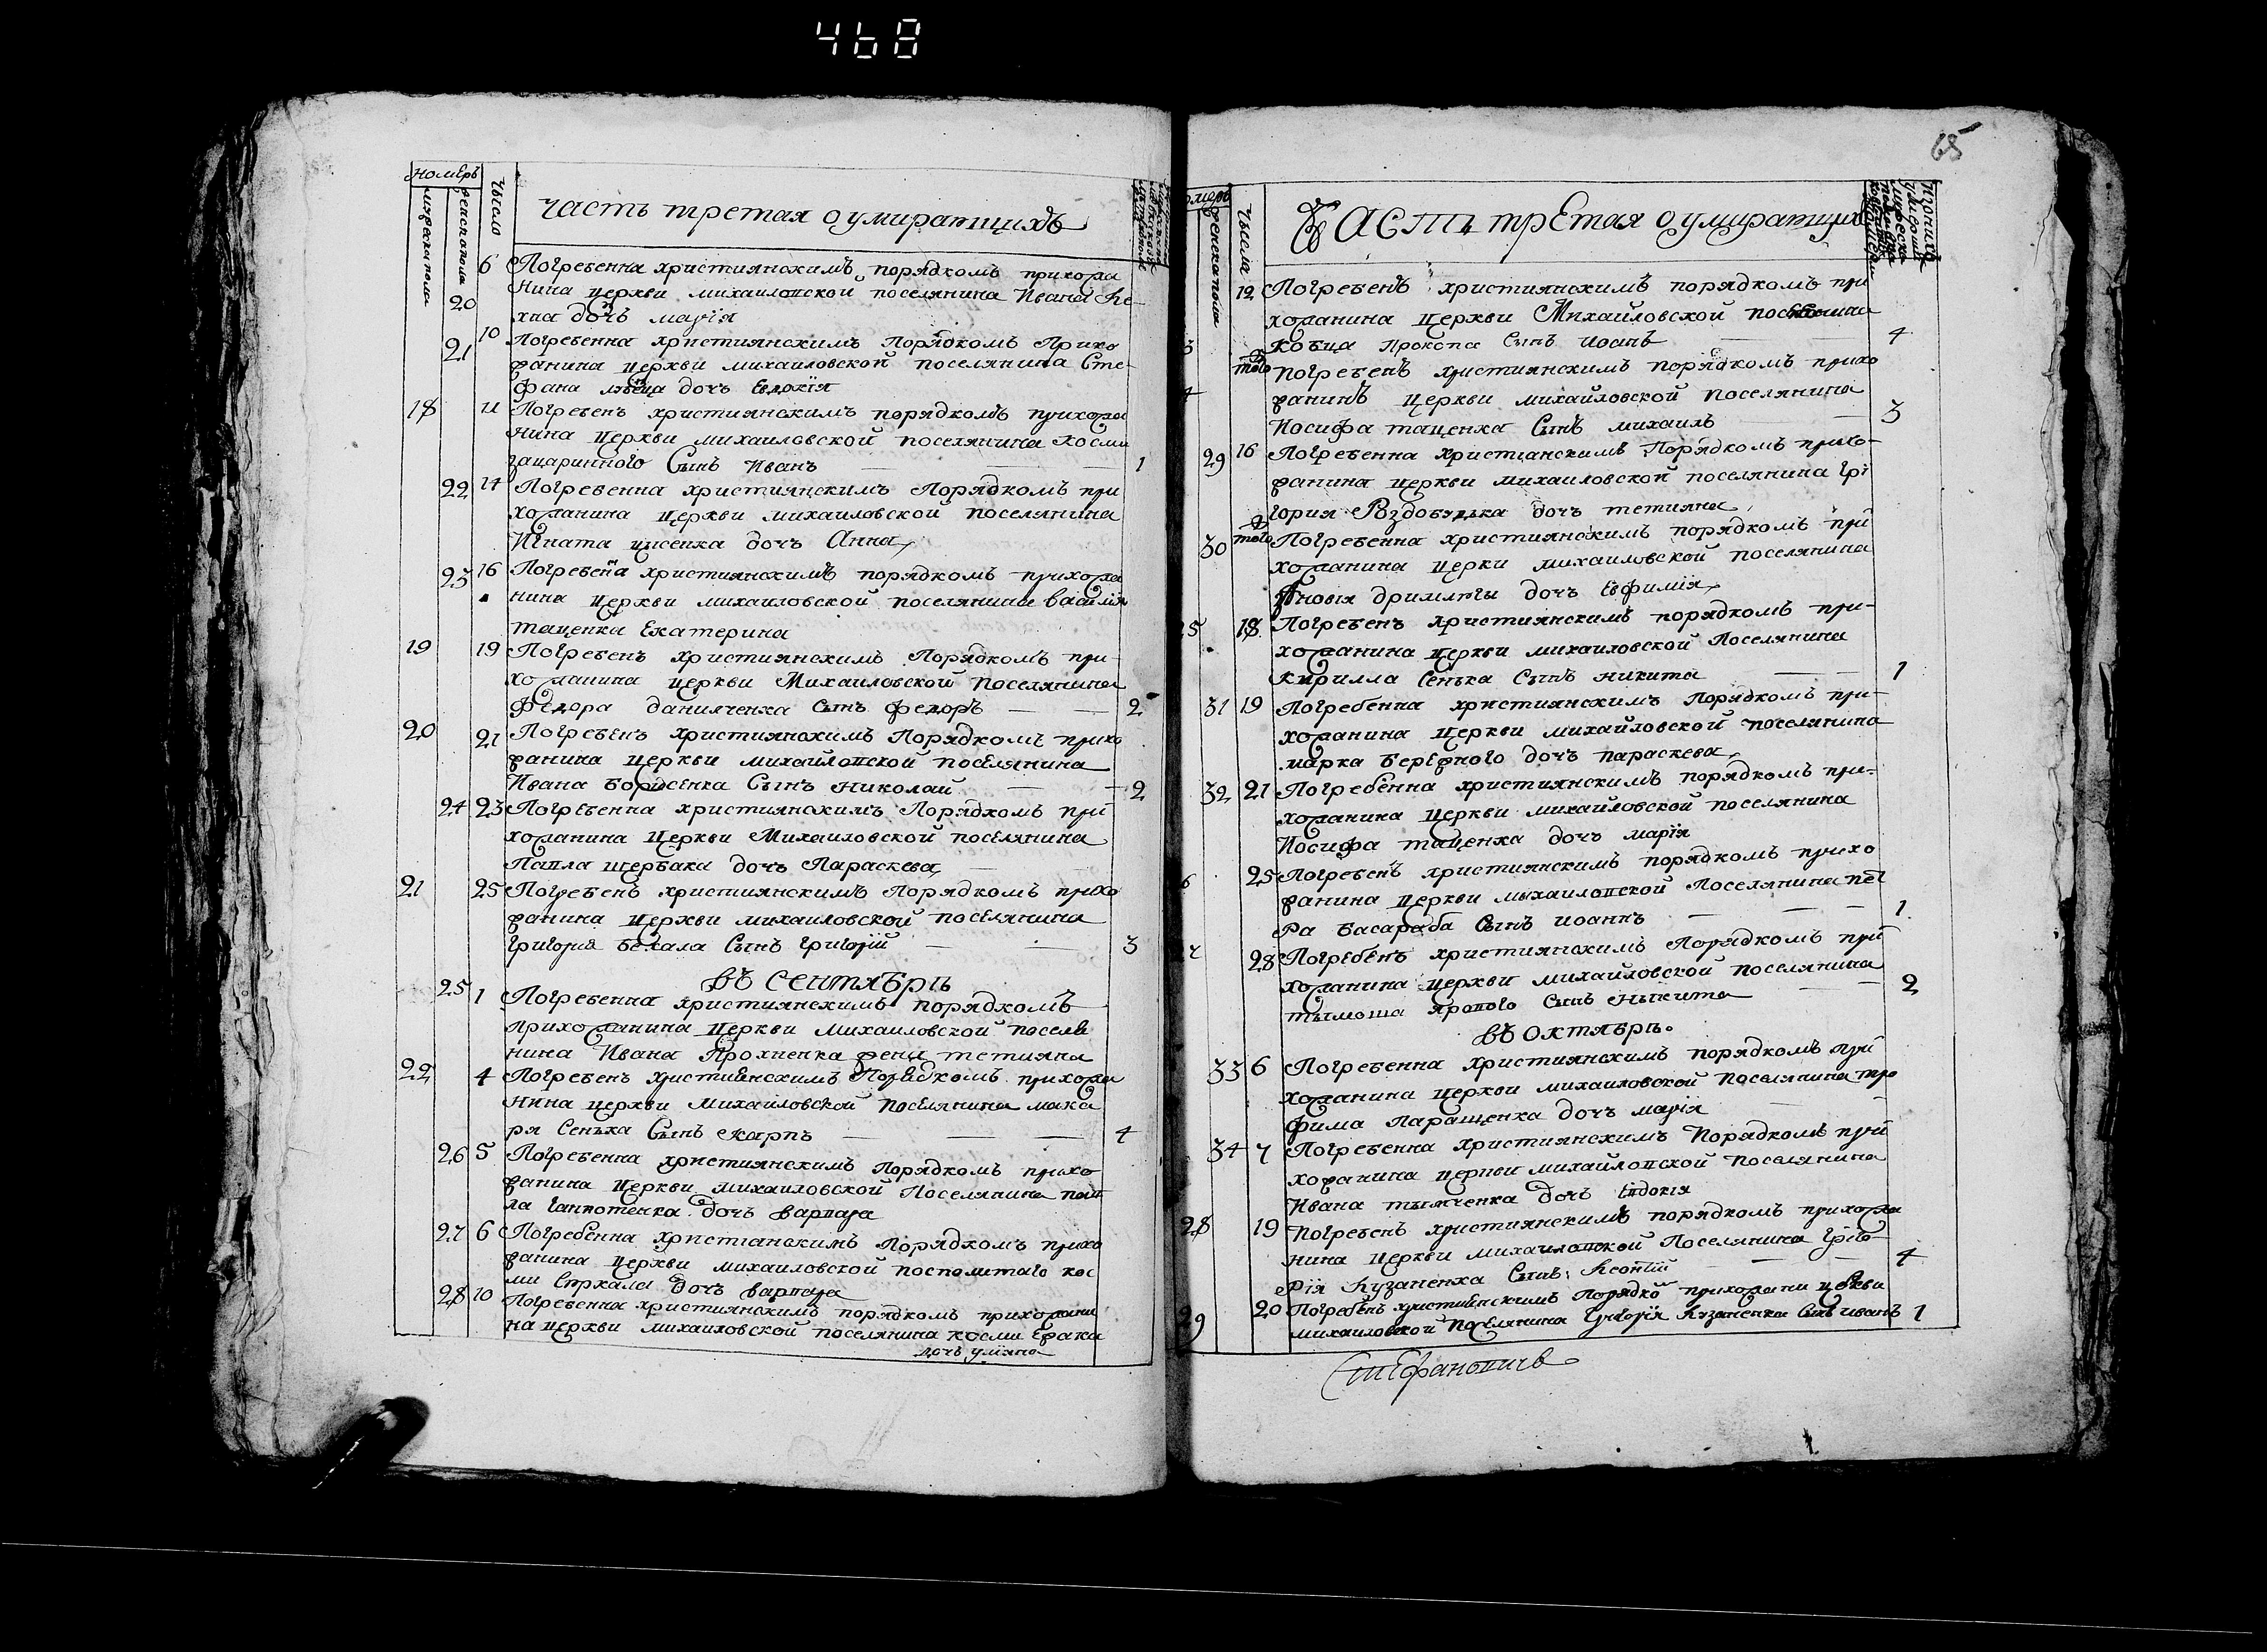 468
номеръ
мужеска пола
женска пола
число
часть третая о умирающихъ
6 Погребенна християнскимъ порядкомъ прихожа
20 нина церкви михаиловской поселянина Ивана
дочь марія
21 10 Погребенна християнскимъ Порядкомъ Прихо
жанина церкви михаиловской поселянина Сте-
фана дочь Евдокія
18 11 Погребенъ християнскимъ порядкомъ прихожа
нина церкви михаиловской поселянина Косми
гацаринного Сынъ Иванъ — 1
22 14 Погребенна християнскимъ Порядкомъ при
хожанина церкви михаиловской поселянина
Игната дочь Анна
23 16 Погребенна християнскимъ порядкомъ прихожа
нина церкви михаиловской поселянина василия
таценка Екатерина
19 19 Погребенъ християнскимъ Порядкомъ при-
хожанина церкви Михаиловской поселянина
Федора данилченка Сынъ федоръ — — 2
20 21 Погребенъ християнскимъ Порядкомъ прихо
жанина церкви михайловской поселянина
Ивана борисенка Сынъ николай — — 2
24 23 Погребенна християнскимъ Порядкомъ при
хожанина церкви Михаиловской поселянина
Павла щербака дочь Параскева
21 25 Погребенъ християнскимъ Порядкомъ прихо
жанина церкви михаиловской поселянина
григорія бехала Сынъ григорій — 3
въ сентябрѣ
25 1 Погребенна християнскимъ порядкомъ
прихожанина церкви михаиловской поселя
нина Ивана Прохненка жена тетияна
22 4 Погребенъ християнскимъ Порядкомъ прихожа
нина церкви михаиловской поселянина мака
ря Сенька Сынъ карпъ — — — 4
26 5 Погребенна християнскимъ Порядкомъ прихо
жанина церкви михаиловской Поселянина пав
ла дочь варвара
27 6 Погребенна християнскимъ Порядкомъ прихо
жанина церкви михаиловской посполитаго кос
ми дочь варвара
28 10 Погребенна християнскимъ порядкомъ прихожани
на церкви михаиловской поселянина косми
дочь уліяна
65
номеръ
женска пола
числа
Часть третая о умирающихъ
12 Погребенъ християнскимъ порядкомъ при
хожанина церкви Михайловской поселянина
3 кобца прокопа Сынъ иоанъ — — 4
того погребенъ християнскимъ порядкомъ прихо
4 жанинъ церкви михайловской поселянина
Иосифа таценка Сынъ михаилъ — 3
29 16 Погребенна християнскимъ Порядкомъ прихо-
жанина церкви михаиловской поселянина гри
гория Роздобудька дочь тетияна
30 того Погребенна християнскимъ порядкомъ при
хожанина церки михаиловской поселянина
дримлюги дочь Евфимія
25 18 Погребенъ християнскимъ порядкомъ при-
хожанина церкви михаиловской Поселянина
кирилла Сенька Сынъ никита — — 1
31 19 Погребенна християнскимъ Порядкомъ при-
хожанина церкви михайловской поселянина
марка бережного дочь параскева
32 21 Погребенна християнскимъ порядкомъ при-
хожанина церкви михайловской поселянина
Иосифа таценка дочь марія
6 25 Погребенъ християнскимъ порядкомъ прихо
жанина церкви мыхаиловской Поселянина пет
ра басараба Сынъ иоаннъ — — — 1
28 Погребенъ християнскимъ Порядкомъ при
хожанина церкви михайловской поселянина
тымоша ярового Сынъ Ныкита — — 2
въ октябрѣ
33 6 Погребенна християнскимъ порядкомъ при
хожанина церкви михаиловской поселянина тро
фима Паращенка дочь марія
34 7 Погребенна християнскимъ Порядкомъ при
хожанина церкви михайловской поселянина
Ивана тымченка дочь Евдокія
28 19 Погребенъ християнскимъ порядкомъ прихожа
нина церкви михаиловской Поселянина григо-
рія Кузаненка Сынъ Леонтій — — 4
29 20 Погребенъ християнскимъ порядко прихожани церкви
михаиловской Поселянина григорія Кузаненка Сынъ иванъ 1
Стефановичъ